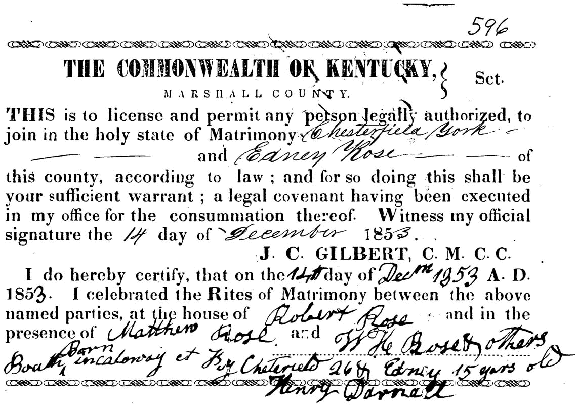 596
THE COMMONWEALTH OF KENTUCKY, } Sct.
MARSHALL COUNTY.
THIS is to license and permit any person legally authorized, to
join in the holy state of Matrimony Chesterfield York
and Edney Rose of
this county, according to law ; and for so doing this shall be
your sufficient warrant ; a legal covenant having been executed
in my office for the consummation thereof. Witness my official
signature the 14 day of December 1853.
J. C. GILBERT, C. M. C. C.
I do hereby certify, that on the 14th day of Decm 1953 A. D.
1853. I celebrated the Rites of Matrimony between the above
named parties, at the house of Robert Rose and in the
presence of Matthew Rose and W H Rose & others
Boath Born in Caloway et Ky Cheterfield 26 & Edney 15 years old
Henry Darnall